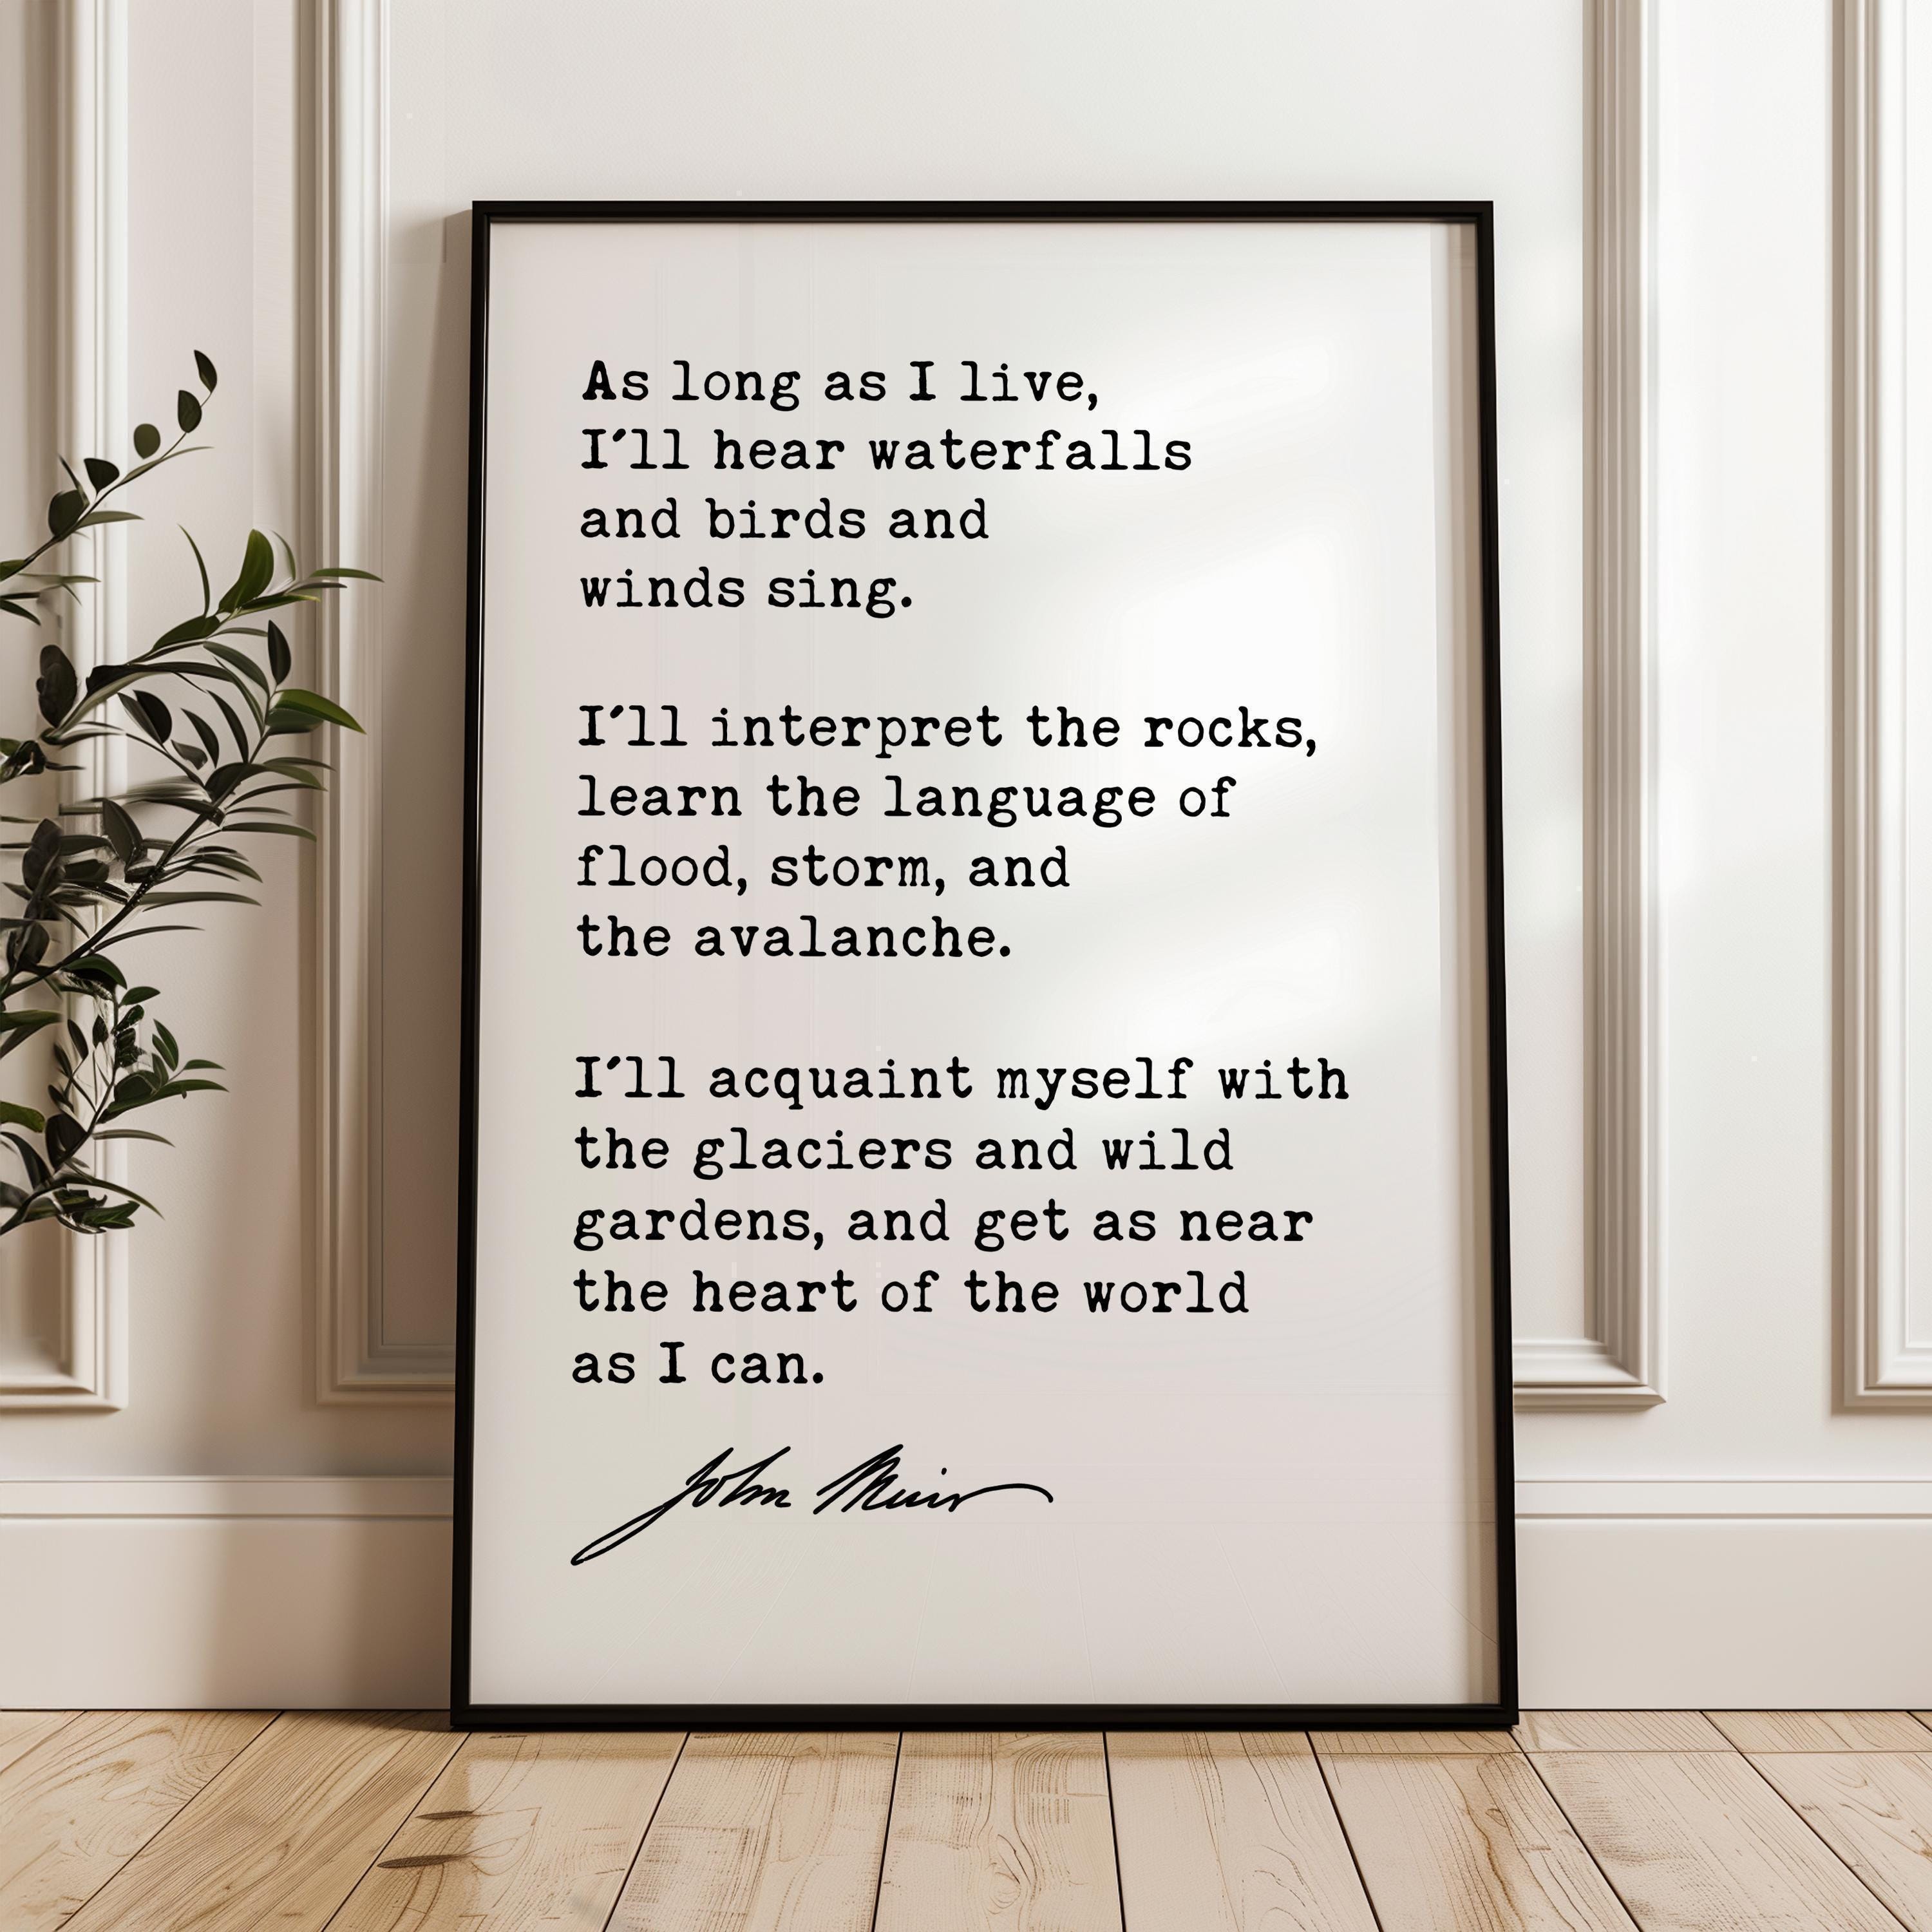 As long as I live,
I'll hear waterfalls
and birds and
winds sing.
I'll interpret the rocks,
learn the language of
flood, storm, and
the avalanche.
I'll acquaint myself with
the glaciers and wild
gardens, and get as near
the heart of the world
as I can.
John Muir